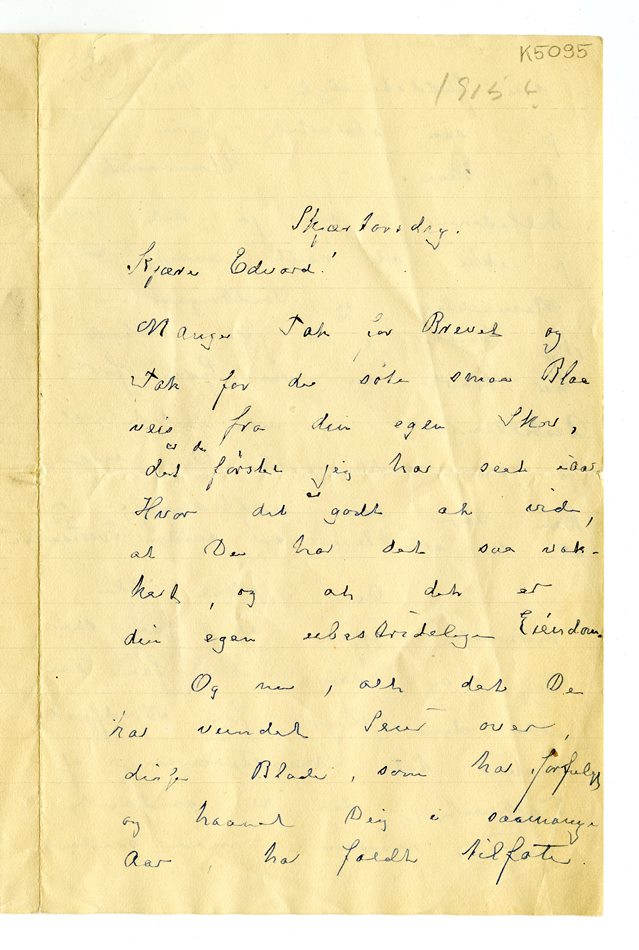 K5095
1915
Skjærtorsdag.
Kjære Edvard!
Mange Tak for Brevet og
Tak for de søte smaa Blaa
veis fra din egen Skov,
er de
det første jeg har seet iaar
Hvor det er godt at vide,
at Du har det saa vak-
kert, og at det er
din egen ubestridelige Eiendom.
Og nu, alt det Du
har vundet Seir over,
disse Blade, som har forfulgt
og haanet Dig i saamange
Aar, har faldt tilfote.